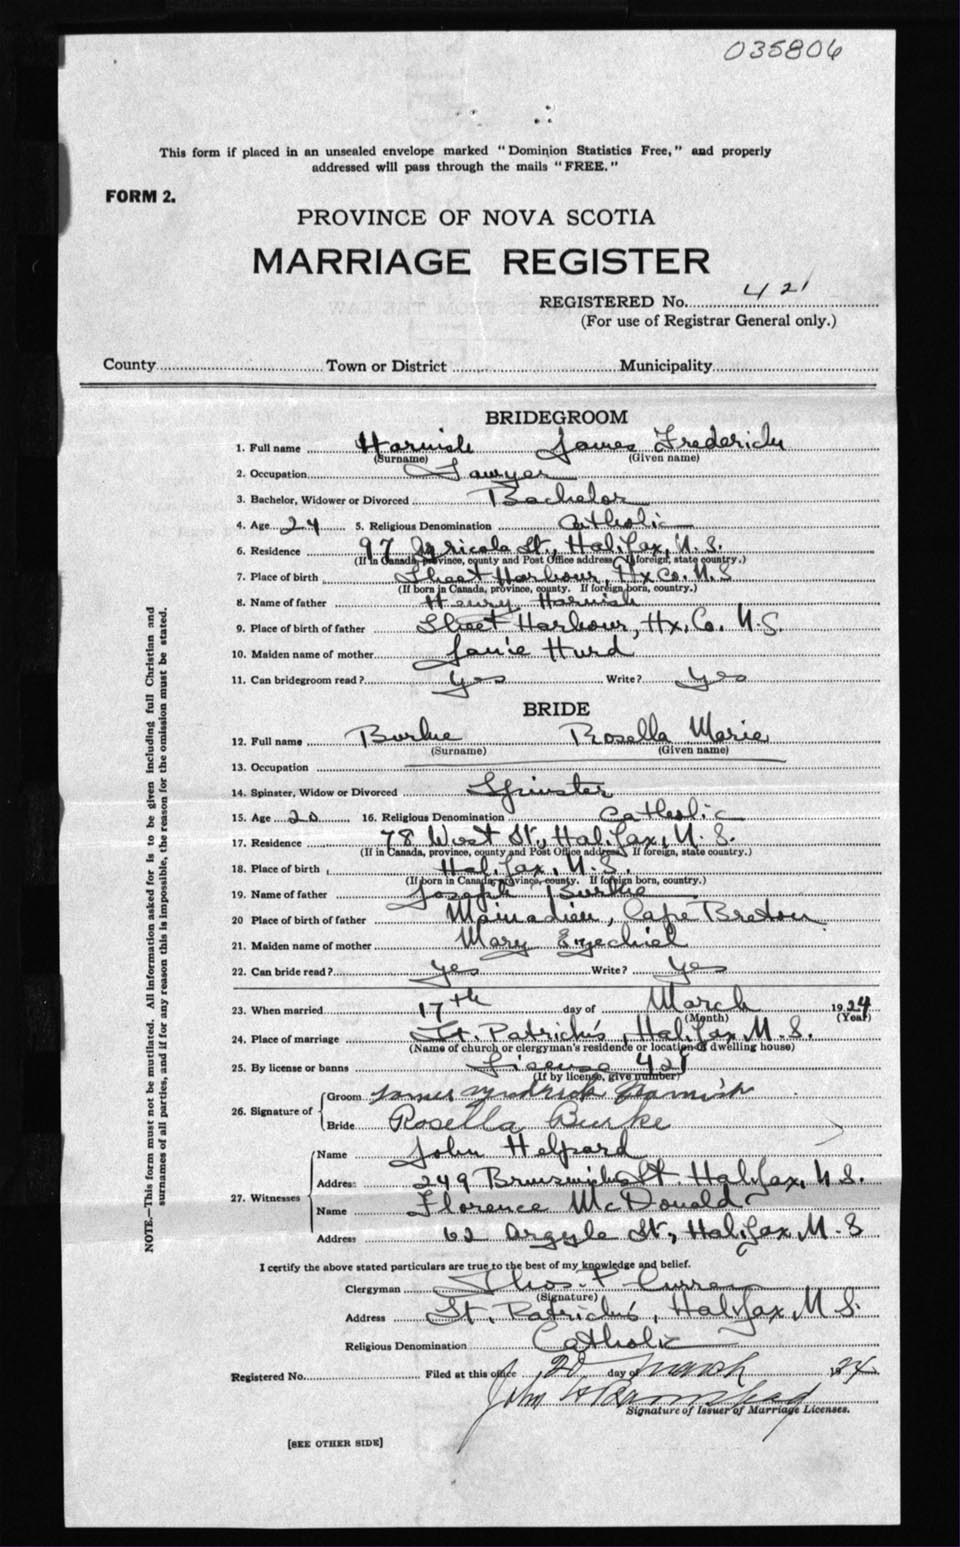 035806
This form if placed in an unsealed envelope marked "Dominion Statistics Free," and properly
addressed will pass through the mails "FREE."
FORM 2.
PROVINCE OF NOVA SCOTIA
MARRIAGE REGISTER
REGISTERED No. 421
(For use of Registrar General only.)
County Town or District Municipality
BRIDEGROOM
1. Full name Harnish James Frederick
(Surname) (Given name)
2. Occupation Lawyer
3. Bachelor, Widower or Divorced Bachelor
4. Age 24 5. Religious Denomination Catholic
6. Residence 97 Agricola St, Halifax, N.S.
(If in Canada, province, county and Post Office address. If foreign, state country.)
7. Place of birth Sheet Harbour, Hx Co. N.S
(If born in Canada, province, county. If foreign born, country.)
8. Name of father Henry Harnish
9. Place of birth of father Sheet Harbour, Hx, Co. N.S
10. Maiden name of mother Janie Hurd
11. Can bridegroom read? Yes Write? Yes
BRIDE
12. Full name Burke Rosella Marie
(Surname) (Given name)
13. Occupation
14. Spinster, Widow or Divorced Spinster
15. Age 20 16. Religious Denomination Catholic
17. Residence 78 West St, Halifax, N.S.
(If in Canada, province, county and Post Office address. If foreign, state country.)
18. Place of birth Halifax, N.S.
(If born in Canada, province, county. If foreign born, country.)
19. Name of father Joseph Burke
20 Place of birth of father Mainadieu, Cape Breton
21. Maiden name of mother Mary Ezechiel
22. Can bride read? Yes Write? Yes
23. When married 17th day of March 1924
(Month) (Year)
24. Place of marriage St. Patrick's, Halifax N.S.
(Name of church or clergyman's residence or location of dwelling house)
25. By license or banns License 421
(If by license, give number)
26. Signature of Groom James Fredrick Harnish
Bride Rosella Burke
27. Witnesses Name John Helpard
Address 249 Brunswick St. Halifax, N.S.
Name Florence McDonald
Address 62 Argyle St, Halifax N.S
I certify the above stated particulars are true to the best of my knowledge and belief.
Clergyman Thos. P Curran
(Signature)
Address St. Patrick's, Halifax, N.S.
Religious Denomination Catholic
Registered No. Filed at this office 20 day of March 1924
John H
Signature of Issuer of Marriage Licenses.
[SEE OTHER SIDE]
NOTE.—This form must not be mutilated. All information asked for is to be given including full Christian and
surnames of all parties, and if for any reason this is impossible, the reason for the omission must be stated.